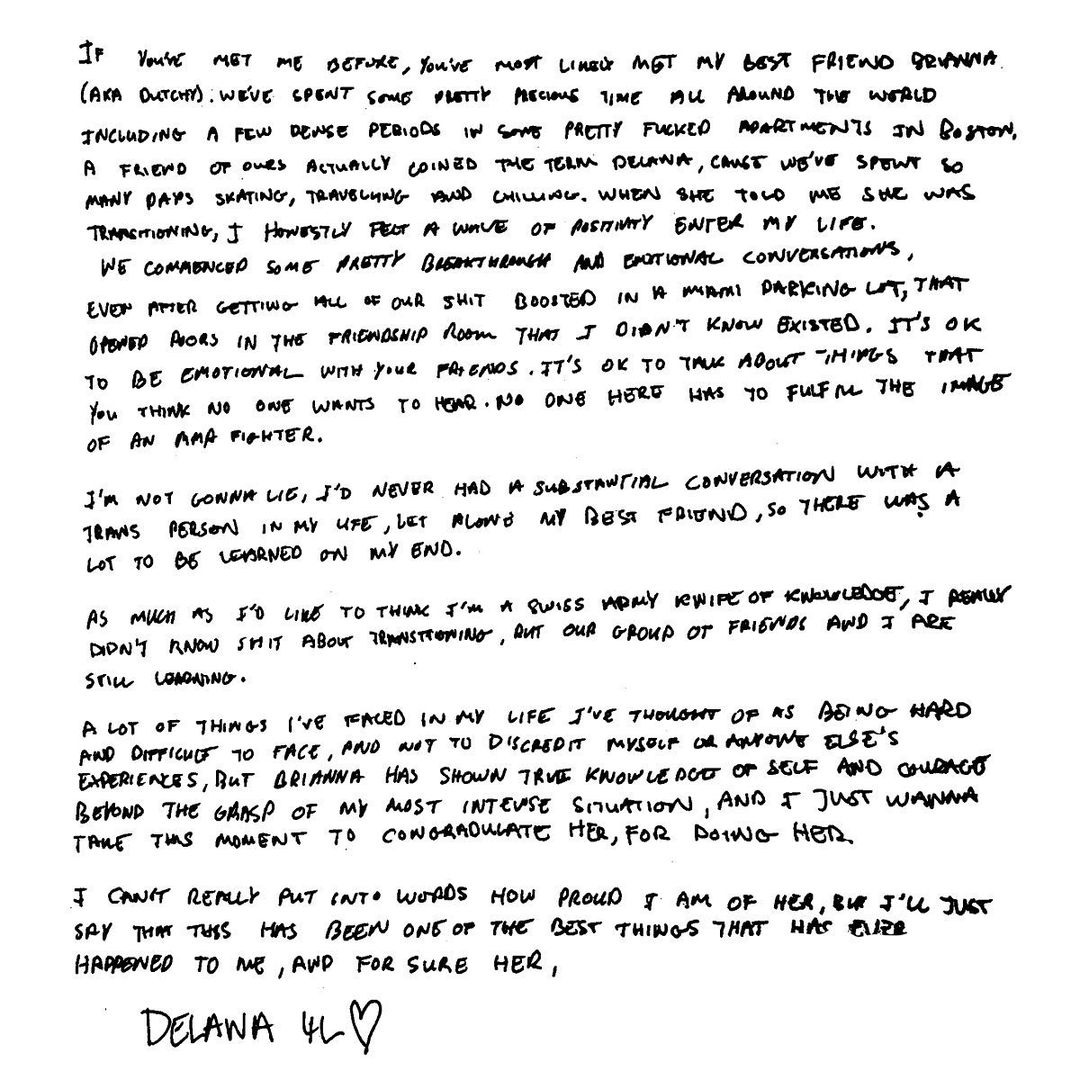 IF YOU'VE MET ME BEFORE, YOU'VE MOST LIKELY MET MY BEST FRIEND BRIANNA
(AKA DUTCHY). WE'VE SPENT SOME PRETTY PRECIOUS TIME ALL AROUND THE WORLD
INCLUDING A FEW DENSE PERIODS IN SOME PRETTY FUCKED APARTMENTS IN BOSTON.
A FRIEND OF OURS ACTUALLY COINED THE TERM DELANA, CAUSE WE'VE SPENT SO
MANY DAYS SKATING, TRAVELLING AND CHILLING. WHEN SHE TOLD ME SHE WAS
TRANSITIONING, I HONESTLY FELT A WAVE OF POSITIVITY ENTER MY LIFE.
WE COMMENCED SOME PRETTY BREAKTHROUGH AND EMOTIONAL CONVERSATIONS,
EVEN AFTER GETTING ALL OF OUR SHIT BOOSTED IN A MIAMI PARKING LOT, THAT
OPENED DOORS IN THE FRIENDSHIP ROOM THAT I DIDN'T KNOW EXISTED. IT'S OK
TO BE EMOTIONAL WITH YOUR FRIENDS. IT'S OK TO TALK ABOUT THINGS THAT
YOU THINK NO ONE WANTS TO HEAR. NO ONE HERE HAS TO FULFILL THE IMAGE
OF AN MMA FIGHTER.
I'M NOT GONNA LIE, I'D NEVER HAD A SUBSTANTIAL CONVERSATION WITH A
TRANS PERSON IN MY LIFE, LET ALONE MY BEST FRIEND, SO THERE WAS A
LOT TO BE LEARNED ON MY END.
AS MUCH AS I'D LIKE TO THINK I'M A SWISS ARMY KNIFE OF KNOWLEDGE, I REALLY
DIDN'T KNOW SHIT ABOUT TRANSITIONING, BUT OUR GROUP OF FRIENDS AND I ARE
STILL LEARNING.
A LOT OF THINGS I'VE FACED IN MY LIFE I'VE THOUGHT OF AS BEING HARD
AND DIFFICULT TO FACE, AND NOT TO DISCREDIT MYSELF OR ANYONE ELSE'S
EXPERIENCES, BUT BRIANNA HAS SHOWN TRUE KNOWLEDGE OF SELF AND COURAGE
BEYOND THE GRASP OF MY MOST INTENSE SITUATION, AND I JUST WANNA
TAKE THIS MOMENT TO CONGRADULATE HER, FOR DOING HER.
I CAN'T REALLY PUT INTO WORDS HOW PROUD I AM OF HER, BUT I'LL JUST
SAY THAT THIS HAS BEEN ONE OF THE BEST THINGS THAT HAS EVER
HAPPENED TO ME, AND FOR SURE HER,
DELANA 4L♡